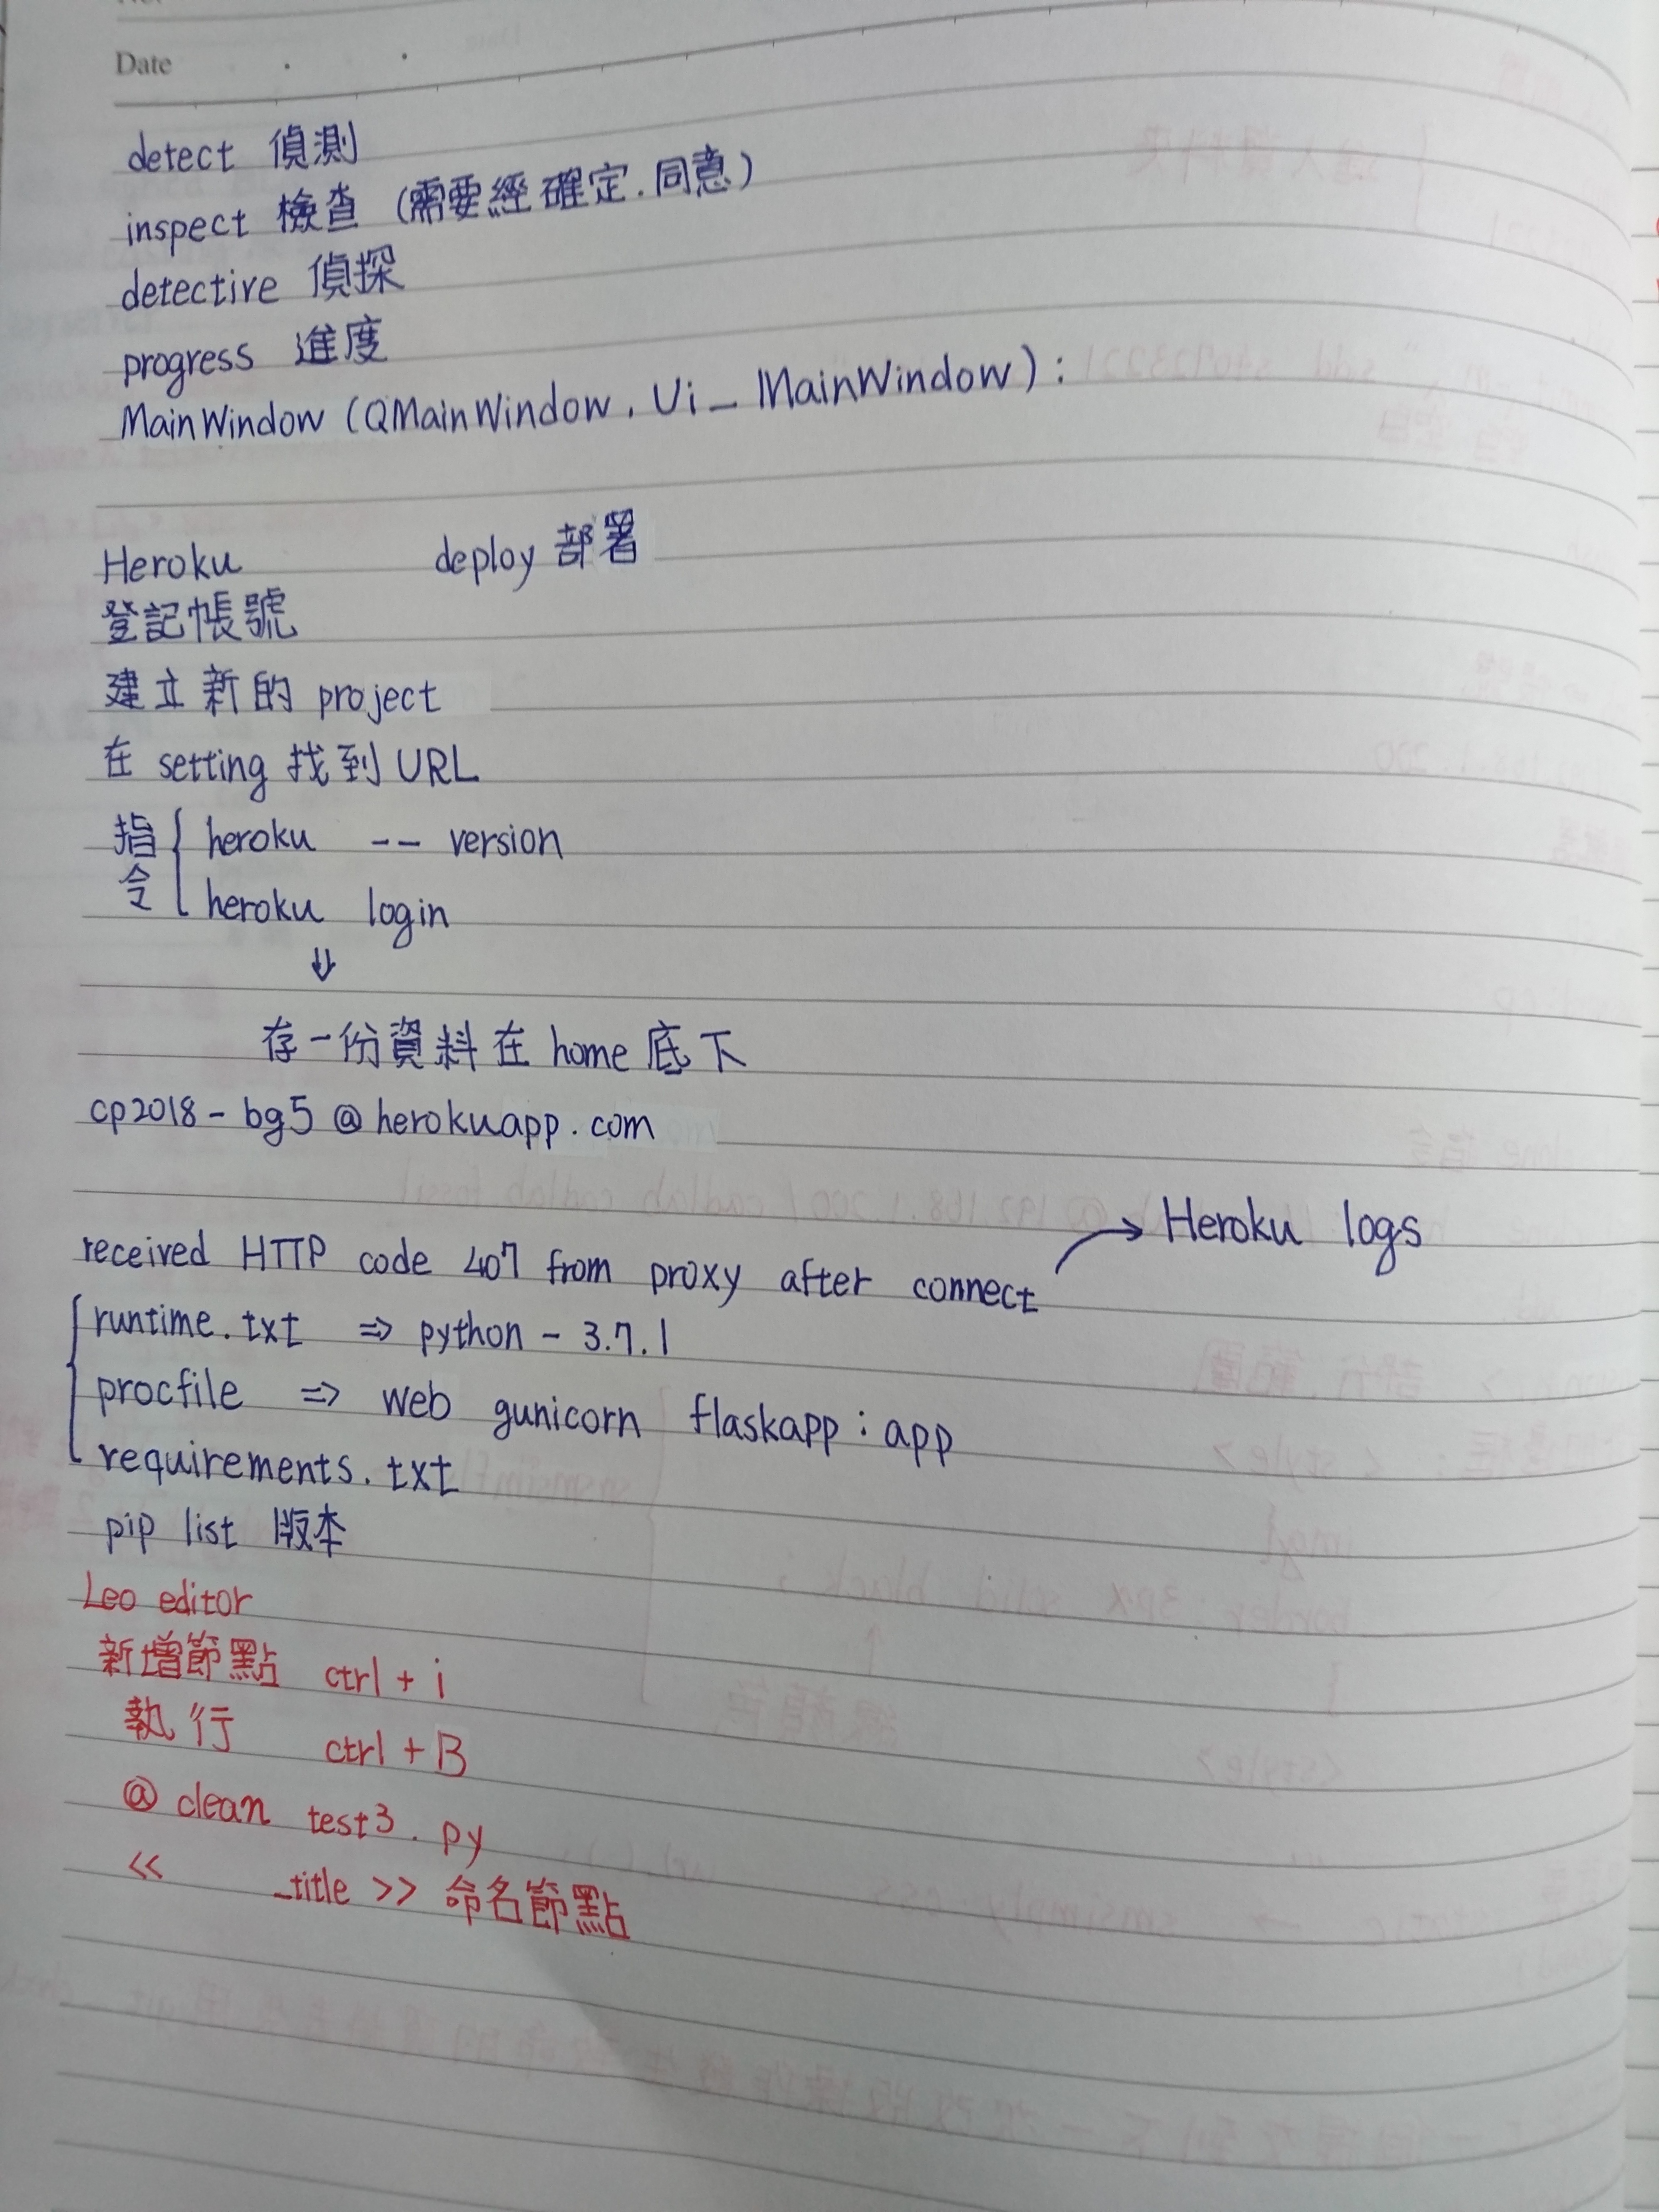 Date
detect 偵測
inspect 檢查 (需要經確定.同意)
detective 偵探
progress 進度
MainWindow (QMainWindow, Ui_MainWindow):
Heroku deploy 部署
登記帳號
建立新的 project
在 setting 找到 URL
指令 { heroku -- version
heroku login
⇓
存一份資料在 home 底下
cp2018-bg5@herokuapp.com
received HTTP code 407 from proxy after connect → Heroku logs
runtime.txt ⇒ python-3.7.1
procfile ⇒ web gunicorn flaskapp:app
requirements.txt
pip list 版本
Leo editor
新增節點 ctrl+i
執行 ctrl+B
@ clean test3.py
<< _title >> 命名節點